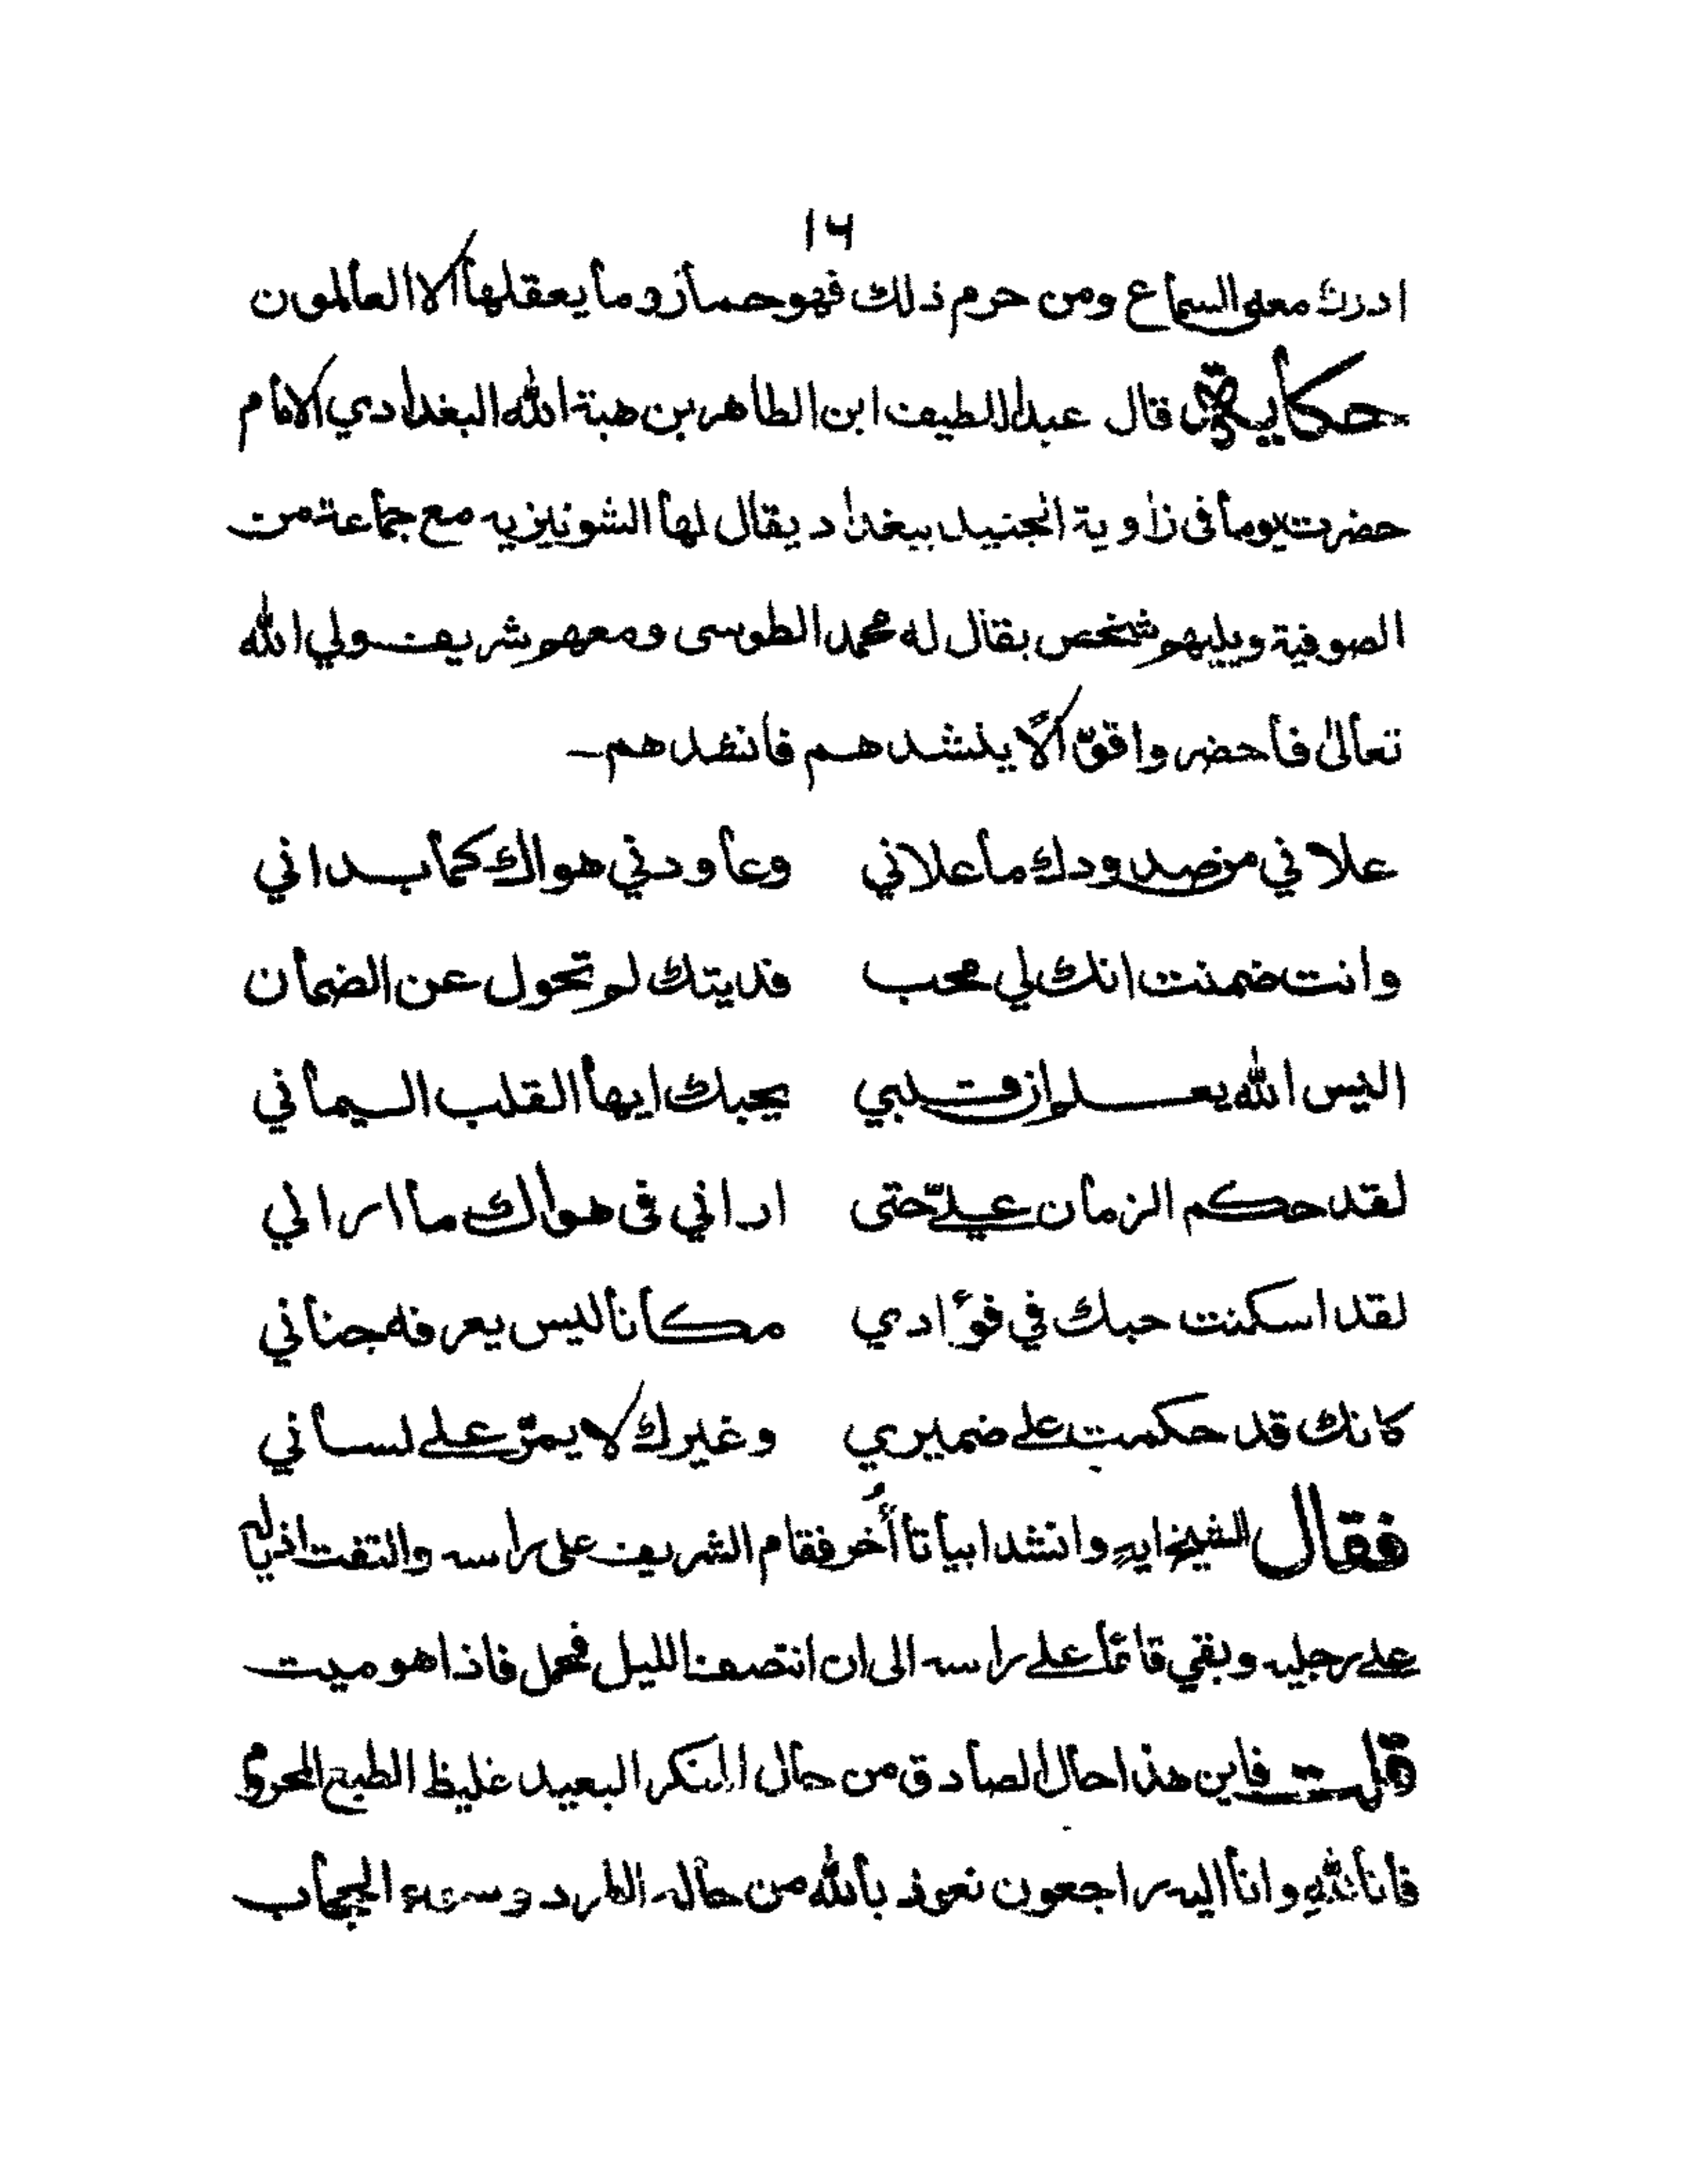 ١٤
ادرك معنى السماع ومن حرم ذلك فهو حمار وما يعقلها الا العالمون
حكاية قال عبد اللطيف ابن الطاهر بن هبة الله البغدادي الامام
حضرت يوما فى زاوية الجنيد ببغداد يقال لها الشونيزيه مع جماعة من
الصوفية ويليهم شخص يقال له محمد الطوسى ومعهم شريف ولي الله
تعالى فاحضروا ينشدهم فانشدهم
علاني من صدودك ما علاني وعاودني هواك كما بداني
وانت ضمنت انك لي محب فديتك لم تحول عن الضمان
اليس الله يعلم ان قلبي يحبك ايها القلب اليماني
لقد حكم الزمان عليّ حتى اراني فى هواك ما اراني
لقد اسكنت حبك في فؤادي مكانا ليس يعرفه جناني
كانك قد حكمت على ضميري وغيرك لا يمرّ على لساني
فقال الشيخ ايهٍ وانشد ابياتا أُخر فقام الشريف على راسه والتفت
على رجليه وبقي قائما على راسه الى ان انتصف الليل فحمل فاذا هو ميت
قلت فاين هذا حال الصادق من حال المنكر البعيد غليظ الطبع المحروم
فانا للهِ وانا اليه راجعون نعوذ بالله من حاله الطرد وسوء الحجاب